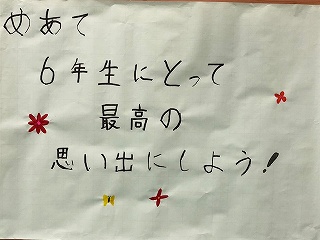 めあて
6年生にとって
最高の
思い出にしよう!